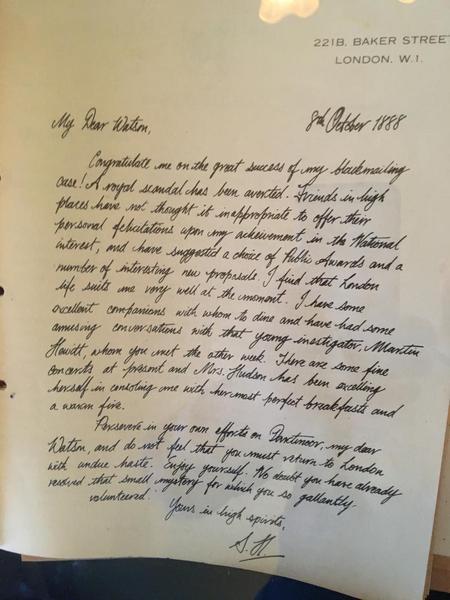 221B, BAKER STREET
LONDON, W.1.
My Dear Watson,
8th October 1888
Congratulate me on the great success of my blackmailing
case! A royal scandal has been averted. Friends in high
places have not thought it inappropriate to offer their
personal felicitations upon my achievement in the National
interest, and have suggested a choice of Public Awards and a
number of interesting new proposals. I find that London
life suits me very well at the moment. I have some
excellent companions with whom to dine and have had some
amusing conversations with that young investigator, Martin
Hewitt, whom you met the other week. There are some fine
concerts at present and Mrs. Hudson has been excelling
herself in consoling me with her most perfect breakfasts and
a warm fire.
Persevere in your own efforts on Dartmoor, my dear
Watson, and do not feel that you must return to London
with undue haste. Enjoy yourself. No doubt you have already
resolved that small mystery for which you so gallantly
volunteered.
Yours in high spirits,
S. H